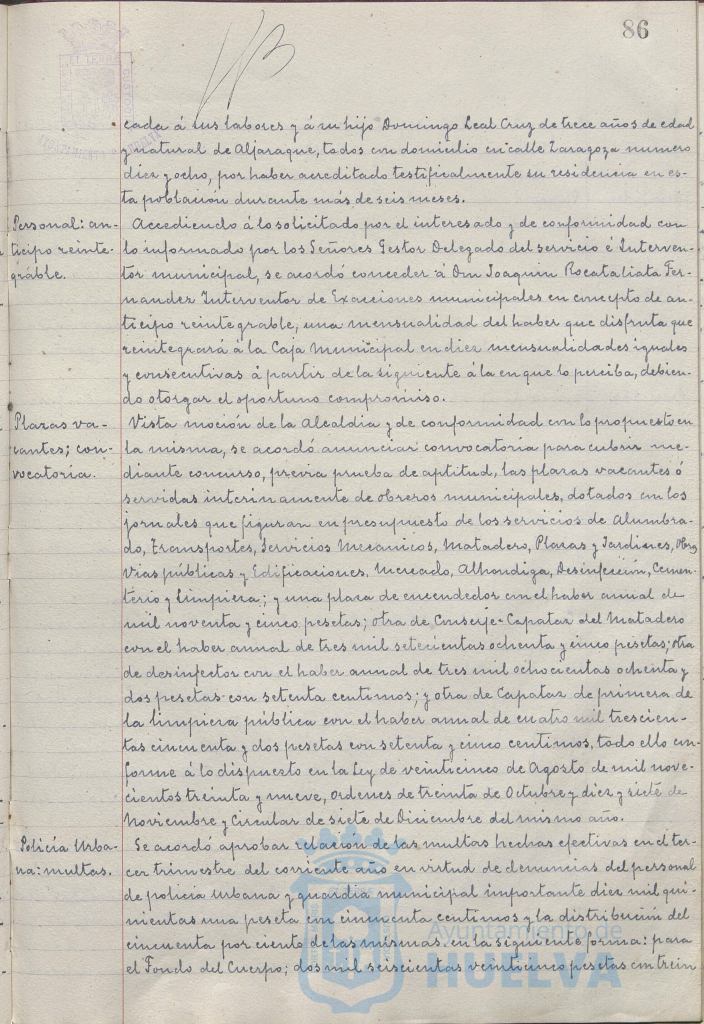 86
cada á sus labores y á su hijo Domingo Leal Cruz de trece años de edad
y natural de Aljaraque, todos con domicilio en calle Zaragoza numero
diez y ocho, por haber acreditado testificalmente su residencia en es-
ta poblacion durante más de seis meses.
Personal: an-
ticipo reinte-
grable.
Accediendo á lo solicitado por el interesado y de conformidad con
lo informado por los Señores Gestor Delegado del servicio é Interven-
tor municipal, se acordó conceder á Don Joaquin Rocatallata Fer-
nandez Interventor de Exacciones municipales en concepto de an-
ticipo reintegrable, una mensualidad del haber que disfruta que
reintegrará á la Caja Municipal en diez mensualidades iguales
y consecutivas á partir de la siguiente á la en que lo perciba, debien-
do otorgar el oportuno compromiso.
Plazas va-
cantes; con-
vocatoria.
Vista moción de la Alcaldia y de conformidad con lo propuesto en
la misma, se acordó anunciar convocatoria para cubrir me-
diante concurso, previa prueba de aptitud, las plazas vacantes ó
servidas interinamente de obreros municipales, dotados con los
jornales que figuran en presupuesto de los servicios de Alumbra-
do, Transportes, Servicios Mecanicos, Matadero, Plazas y Jardines,
Vias públicas y Edificaciones, Mercado, Alhondiga, Desinfección, Cemen-
terio y Limpieza; y una plaza de encendedor con el haber anual de
mil noventa y cinco pesetas; otra de Conserje-Capataz del Matadero
con el haber anual de tres mil setecientas ochenta y cinco pesetas; otra
de desinfector con el haber anual de tres mil ochocientas ochenta y
dos pesetas con setenta centimos; y otra de Capataz de primera de
la limpieza pública con el haber anual de cuatro mil trescien-
tas cincuenta y dos pesetas con setenta y cinco centimos, todo ello con-
forme á lo dispuesto en la Ley de veinticinco de Agosto de mil nove-
cientos treinta y nueve, ordenes de treinta de Octubre y diez y siete de
Noviembre y Circular de siete de Diciembre del mismo año.
Policía Urba-
na: multas.
Se acordó aprobar relación de las multas hechas efectivas en el ter-
cer trimestre del corriente año en virtud de denuncias del personal
de policia urbana y guardia municipal importante diez mil qui-
nientas una peseta con cincuenta centimos y la distribución del
cincuenta por ciento de las mismas en la siguiente forma: para
el Fondo del Cuerpo; dos mil seiscientas veinticinco pesetas con trein
Ayuntamiento de
HUELVA